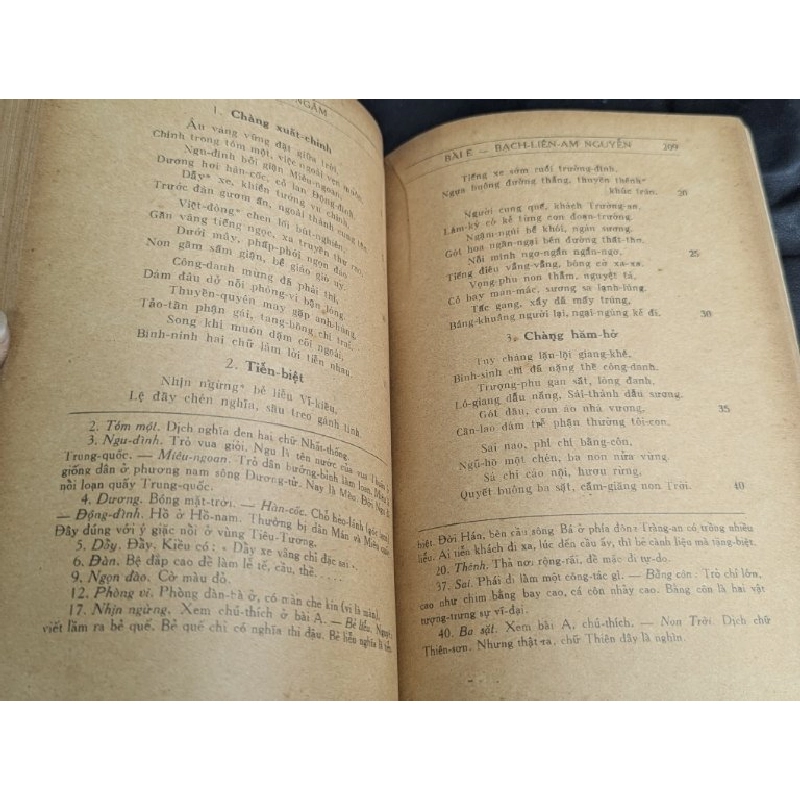 NGÂM
1. Chàng xuất-chinh
Ấu vàng vững đặt giữa Trời,
Chỉnh trong tóm một, việc ngoài
Ngu-đình bồi giận Miêu-ngoan,
Dương hơi hàn-cốc, cỏ lan Động-đình,
Dầy* xe, khiển tướng vu chinh,
Trước đàn gươm ấn, ngoài thành cung tên,
Việt-đòng* chen lối bút-nghiên,
Gần vâng tiếng ngọc, xa truyền thư
Dưới mây, phấp-phới ngọn đào,
Non gầm sấm giận, bể gió uy.
Công-danh mừng đã phải thì,
Dám đâu dở nỗi phòng-vi bận lòng,
Thuyền-quyên may gặp anh-hùng,
Tảo-tần phận gái, tang-bồng chí trai,
Song khi muôn dặm cõi ngoài,
Bình-ninh hai chữ làm lời tiễn nhau.
2. Tiễn-biệt
Nhịn ngừng* bẻ liễu Vị-kiều,
Lệ đầy chén nghĩa, sầu treo gánh tình.
2. Tóm một. Dịch nghĩa đen hai chữ Nhất-thống.
3. Ngu-đình. Trỏ vua giỏi, Ngu là tên nước của vua Thuấn ở
Trung-quốc. — Miêu-ngoan. Trỏ dân bướng-bỉnh làm loạn,
giống dân ở phương nam sông Dương-tử. Nay là Mèo. Đời Ngu
nổi loạn quấy Trung-quốc.
4. Dương. Bóng mặt-trời. — Hàn-cốc. Chỗ hẻo-lánh
— Động-đình. Hồ ở Hồ-nam. Thường bị dân Mán và Miêu
Đây dùng với ý giặc nổi ở vùng Tiêu-Tương.
5. Dầy. Đầy. Kiều có: « Dầy xe vâng chỉ đặc sai ».
6. Đàn. Bệ đắp cao để làm lễ tế, cầu, thề.....
9. Ngọn đào. Cờ màu đỏ.
12. Phòng vi. Phòng đàn-bà ở, có màn che kín (vi là màn).
17. Nhịn ngừng. Xem chú-thích ở bài A. — Bẻ liễu.
viết lầm ra bẻ quế. Bẻ quế chỉ có nghĩa thi đậu. Bẻ liễu nghĩa là tiễn
BÀI E — BẠCH-LIÊN-AM NGUYỄN 209
Tiếng xe sớm ruổi trường-đình,
Ngựa buông đường thẳng, thuyền thênh*
khúc tràn. 20
Người cung quế, khách Trường-an,
Lâm-kỳ có kẻ từng cơn đoạn-trường.
Ngậm-ngùi bể khói, ngàn sương,
Gót hoa ngần-ngại bên đường thất-tha,
Nỗi mình ngơ-ngẩn ngẩn-ngơ, 25
Tiếng điêu vẳng-vẳng, bóng cờ xa-xa.
Vọng-phu non thẳm, nguyệt tà,
Cỏ bay man-mác, sương sa lạnh-lùng.
Tấc gang, xẩy đã mấy trùng,
Bâng-khuâng người lại, ngại-ngùng kẻ đi. 30
3. Chàng hăm-hở
Tuy chàng lặn-lội giang-khê,
Bình-sinh chí đã nặng thề công-danh.
Trượng-phu gan sắt, lòng đanh,
Lô-giang dầu nắng, Sái-thành dầu sương.
Gót đâu, cơm áo nhà vương, 35
Cân-lao dám trễ phận thường tôi-con.
Sai nao, phỉ chí bằng-côn,
Ngô-hồ một chén, ba non nửa vừng.
Sá chi cáo nội, hươu rừng,
Quyết buông ba sắt, cầm-giăng non Trời. 40
biệt. Đời Hán, bên cầu sông Bá ở phía đông Tràng-an có trồng nhiều
liễu. Ai tiễn khách đi xa, lúc đến cầu ấy, thì bẻ cành liễu mà tặng-biệt.
20. Thênh. Thả nơi rộng-rãi, để mặc đi tự-do.
37. Sai. Phải đi làm một công-tác gì. — Bằng côn. Trỏ chí lớn,
cao như chim bằng bay cao, cá côn nhảy cao. Bằng côn là hai vật
tượng-trưng sự vĩ-đại.
40. Ba sắt. Xem bài A, chú-thích. — Non Trời. Dịch chữ
Thiên-sơn. Nhưng thật-ra, chữ Thiên đây là nghìn.